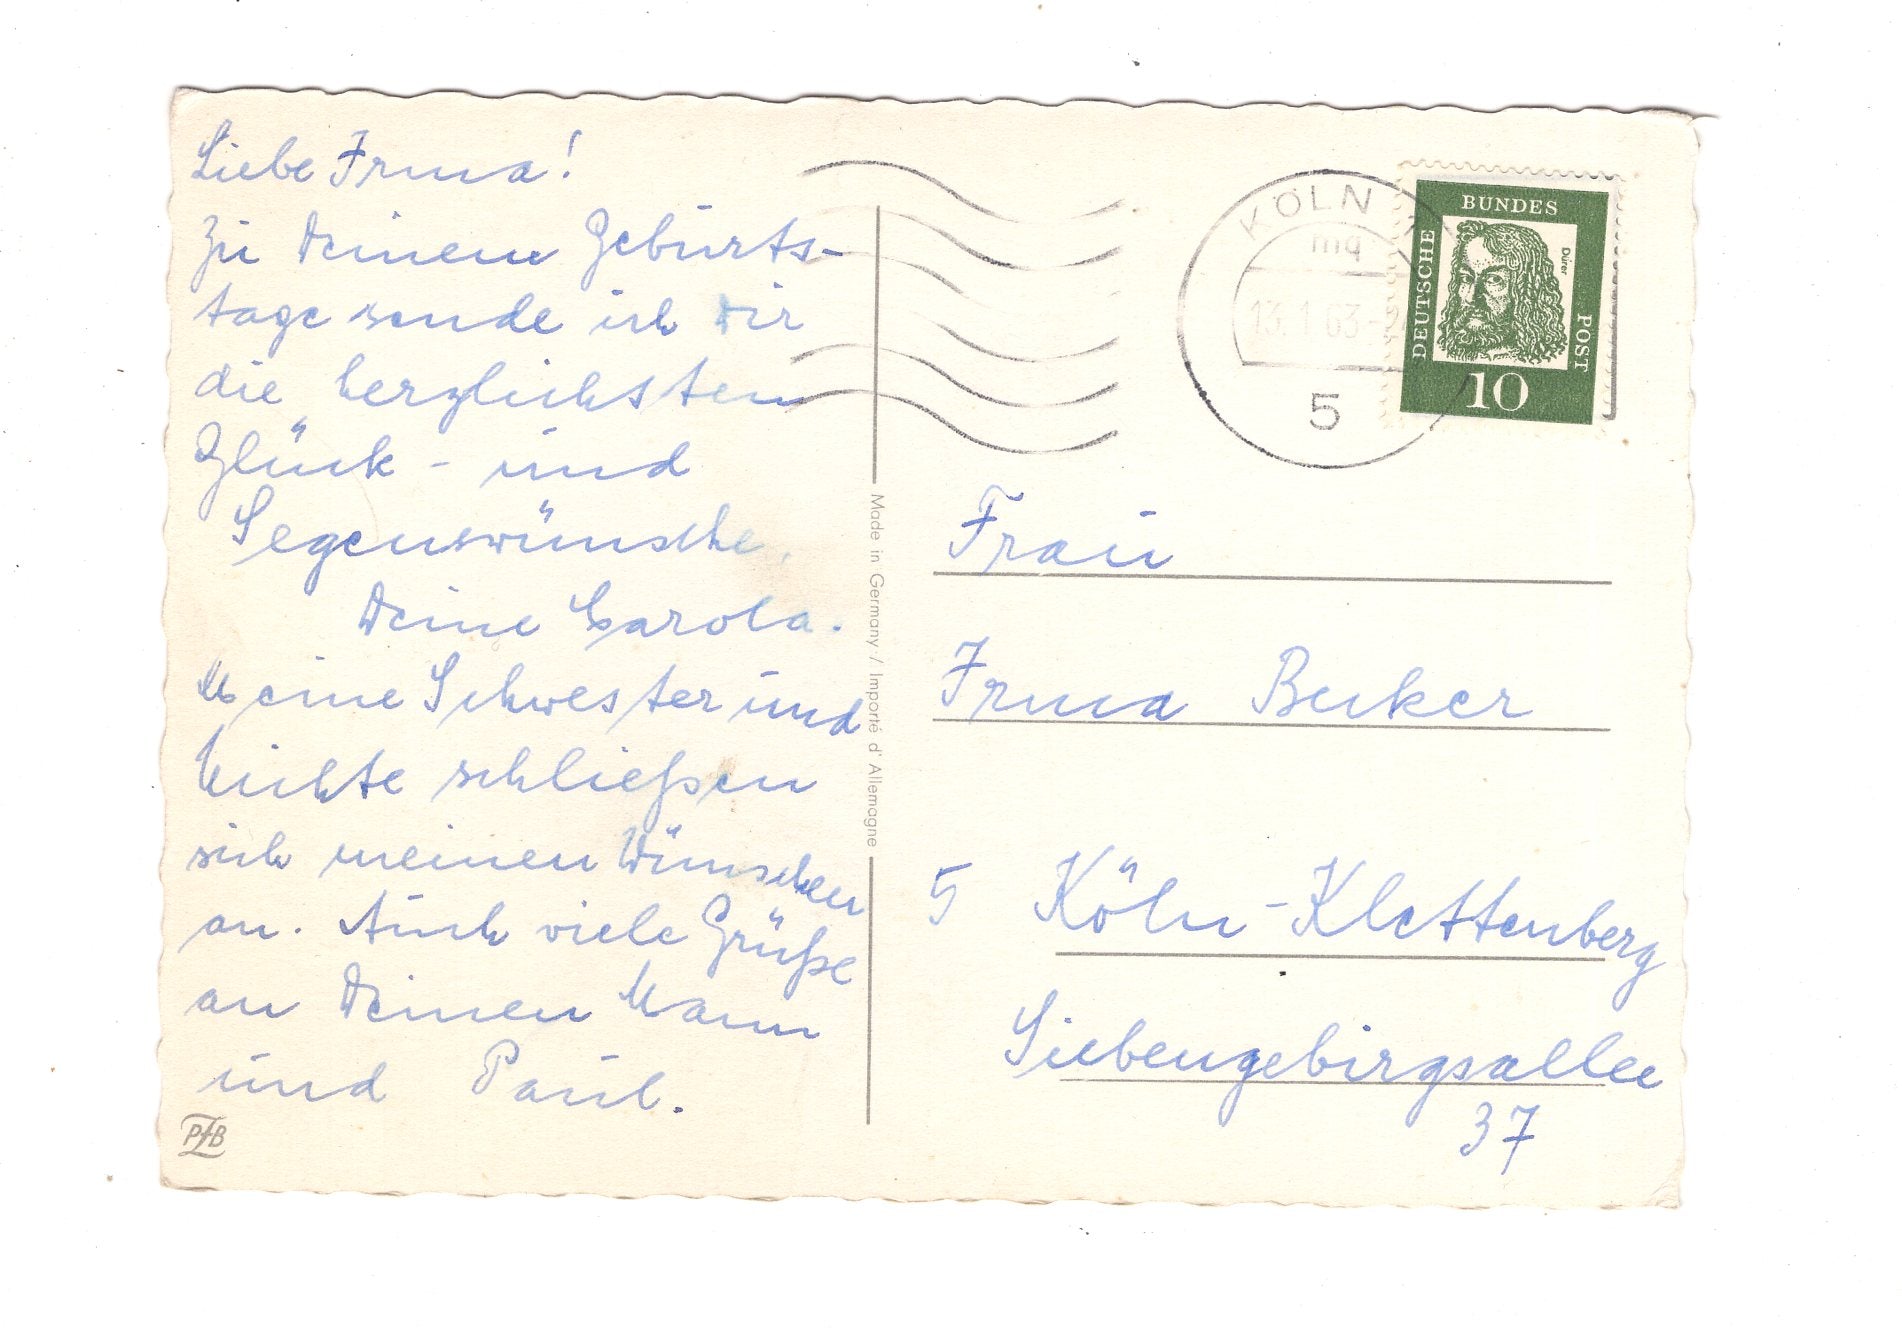 Liebe Irma!
Zu Deinem Geburts-
tage sende ich Dir
die herzlichsten
Glück - und
Segenswünsche.
Deine Carola.
Meine Schwester und
Nichte schließen
sich meinen Wünschen
an. Auch viele Grüße
an Deinen Mann
und Paul.
PfB
Made in Germany / Importé d'Allemagne
KÖLN
mq
13.1.63
5
DEUTSCHE BUNDES POST
Dürer
10
Frau
Irma Becker
5 Köln-Klettenberg
Siebengebirgsallee
37